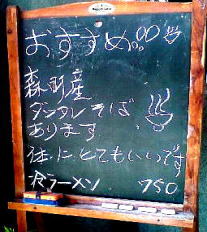 おすすめ
森町産
ダッタンそば
あります
体にとてもいいです
冷ラーメン 750